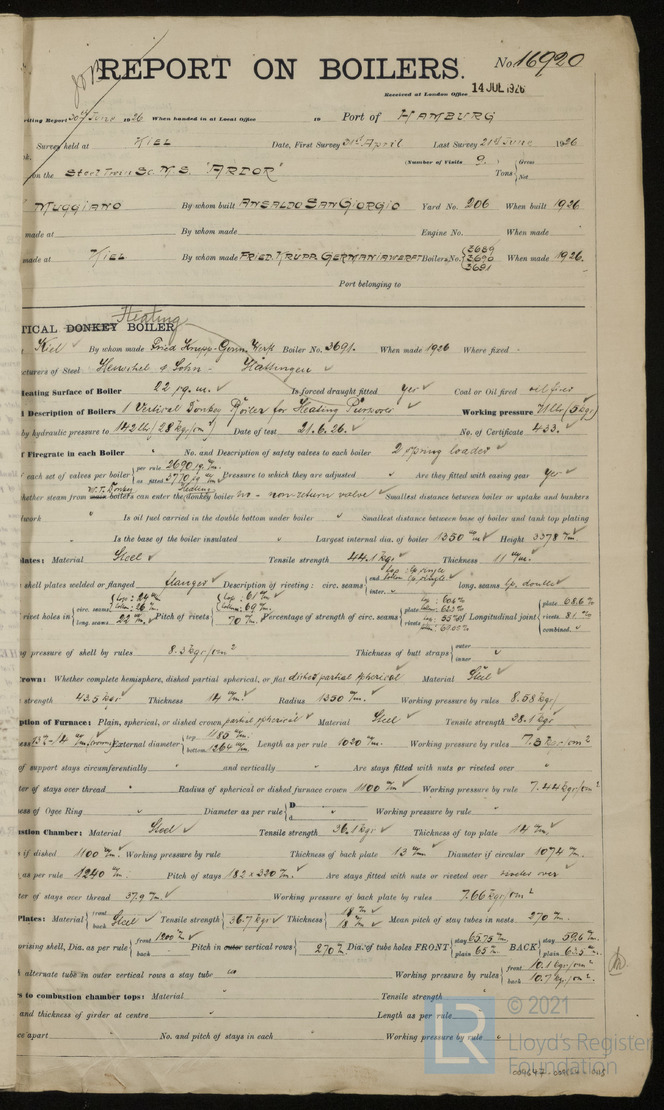 REPORT ON BOILERS.
No. 16920
Received at London Office 14 JUL 1926
Writing Report 30th June 1926 When handed in at Local Office 19 Port of HAMBURG
Survey held at KIEL Date, First Survey April Last Survey 21st June 1926
(Number of Visits 9.
on the Sc. M.S. 'ARDOR' Tons Gross Net
MUGGIANO By whom built ANSALDO SAN GIORGIO Yard No. 206 When built 1926
made at By whom made Engine No. When made
made at KIEL By whom made FRIED. KRUPP. GERMANIAWERFT Boilers No. 3689 3690 3691 When made 1926.
Port belonging to
TICAL DONKEY BOILER Heating
Kiel By whom made Fried Krupp-Germ. Werft Boiler No. 3691. When made 1926 Where fixed -
cturers of Steel Henschel & Sohn - Hattingen
Heating Surface of Boiler 22 sq. m. Is forced draught fitted yes Coal or Oil fired oil fired
Description of Boilers 1 Vertical Donkey Boiler for Heating Purposes Working pressure 71 lb/(5 kgs)
by hydraulic pressure to 142 lb/ Date of test 21.6.26. No. of Certificate 433.
f Firegrate in each Boiler " No. and Description of safety valves to each boiler 2 spring loaded
each set of valves per boiler per rule 2690 as fitted Pressure to which they are adjusted " Are they fitted with easing gear yes
hether steam from main boilers can enter the donkey boiler no - non return valve Smallest distance between boiler or uptake and bunkers
dwork " Is oil fuel carried in the double bottom under boiler " Smallest distance between base of boiler and tank top plating
" Is the base of the boiler insulated " Largest internal dia. of boiler 1350 m/m Height 3378 m/m.
lates: Material Steel Tensile strength 44.1 kgs Thickness 11 m/m.
shell plates welded or flanged flanged Description of riveting: circ. seams end inter. long. seams lp. double
rivet holes in circ. seams long. seams 22 m/m Pitch of rivets 70 m/m Percentage of strength of circ. seams plate rivets of Longitudinal joint plate 68.6 % rivets 81. % combined.
g pressure of shell by rules 8.3 kgs/cm² Thickness of butt straps outer inner
rown: Whether complete hemisphere, dished partial spherical, or flat dished partial spherical Material Steel
strength 43.5 kgs Thickness 14 m/m Radius 1350 m/m Working pressure by rules 8.58 kgs/
ption of Furnace: Plain, spherical, or dished crown partial spherical Material Steel Tensile strength 38.1 kgs
External diameter top 1185 m/m. bottom 1264 m/m Length as per rule 1020 m/m. Working pressure by rules 7.5 kgs/cm²
of support stays circumferentially and vertically Are stays fitted with nuts or riveted over "
ter of stays over thread " Radius of spherical or dished furnace crown 1100 m/m Working pressure by rule 7.44 kgs/cm²
ness of Ogee Ring " Diameter as per rule D d Working pressure by rule "
ustion Chamber: Material Steel Tensile strength 38.1 kgs Thickness of top plate 14 m/m
if dished 1100 m/m. Working pressure by rule Thickness of back plate 13 m/m Diameter if circular 1074 m/m.
as per rule 1240 m/m Pitch of stays 182 x 320 m/m. Are stays fitted with nuts or riveted over riveted over
ter of stays over thread 37.9 m/m. Working pressure of back plate by rules 7.66 kgs/cm²
Plates: Material front back Steel Tensile strength 36.7 kgs Thickness 18 m/m 18 m/m Mean pitch of stay tubes in nests 270 m/m.
prising shell, Dia. as per rule front 1200 m/m back Pitch in outer vertical rows 270 m/m. Dia. of tube holes FRONT stay 65.75 m/m. plain 65 m/m. BACK stay 59.6 m/m. plain
h alternate tube in outer vertical rows a stay tube Working pressure by rules front 10.1 kgs/cm² back 10.7 kgs/cm²
s to combustion chamber tops: Material " Tensile strength
and thickness of girder at centre Length as per rule
ce apart No. and pitch of stays in each " Working pressure by rule
© 2021
LR
Lloyd's Register
Foundation